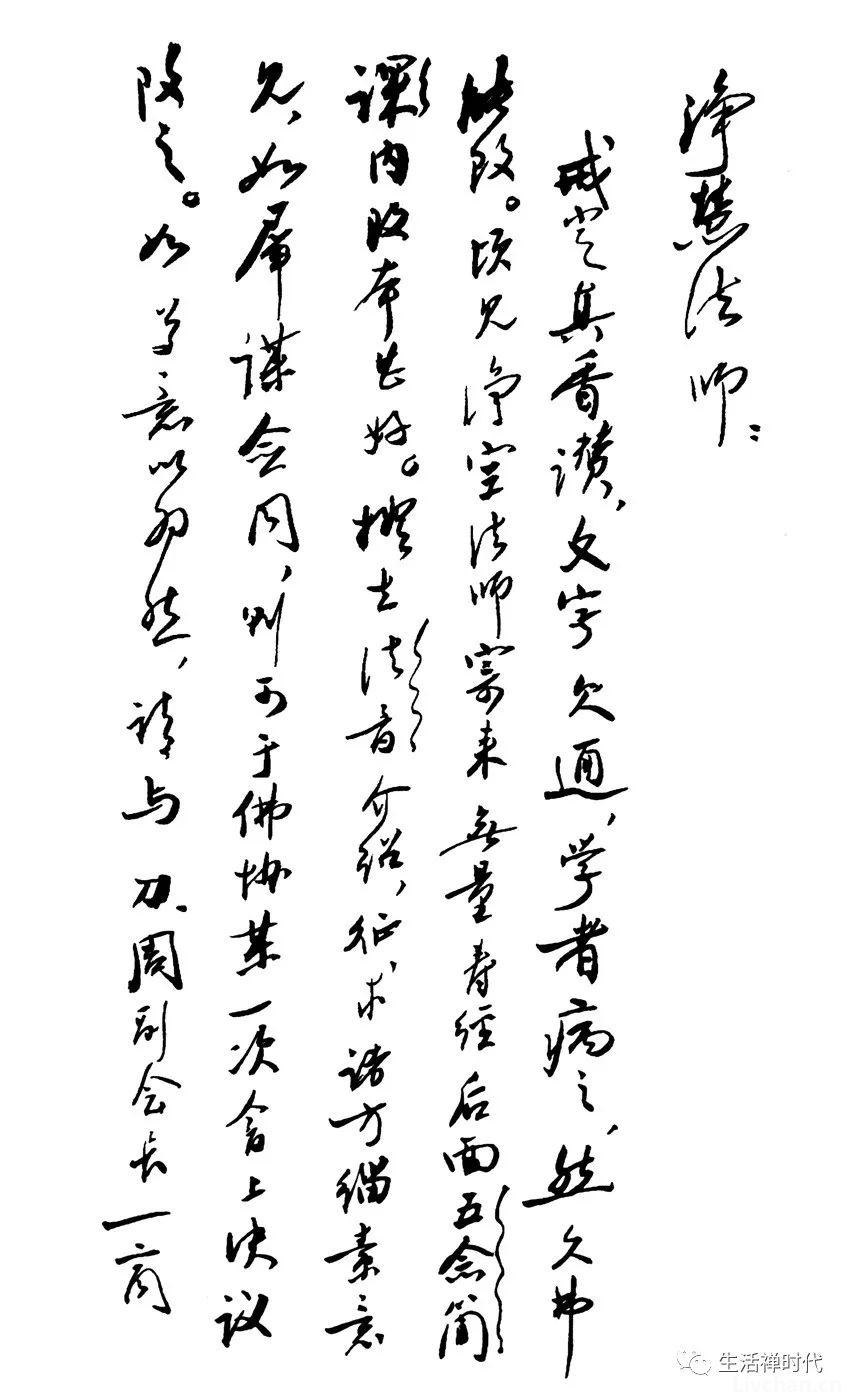 净慧法师：
戒定真香讚，文字欠通，学者病之，然久弗
能改。顷见净空法师寄来無量寿经后面五念简
课内改本甚好。擬在法音介绍，征求诸方缁素意
见，如群谋佥同，则可于佛协某一次会上决议
改之。如尊意以为然，请与刀、周副会长一商
生活禅时代